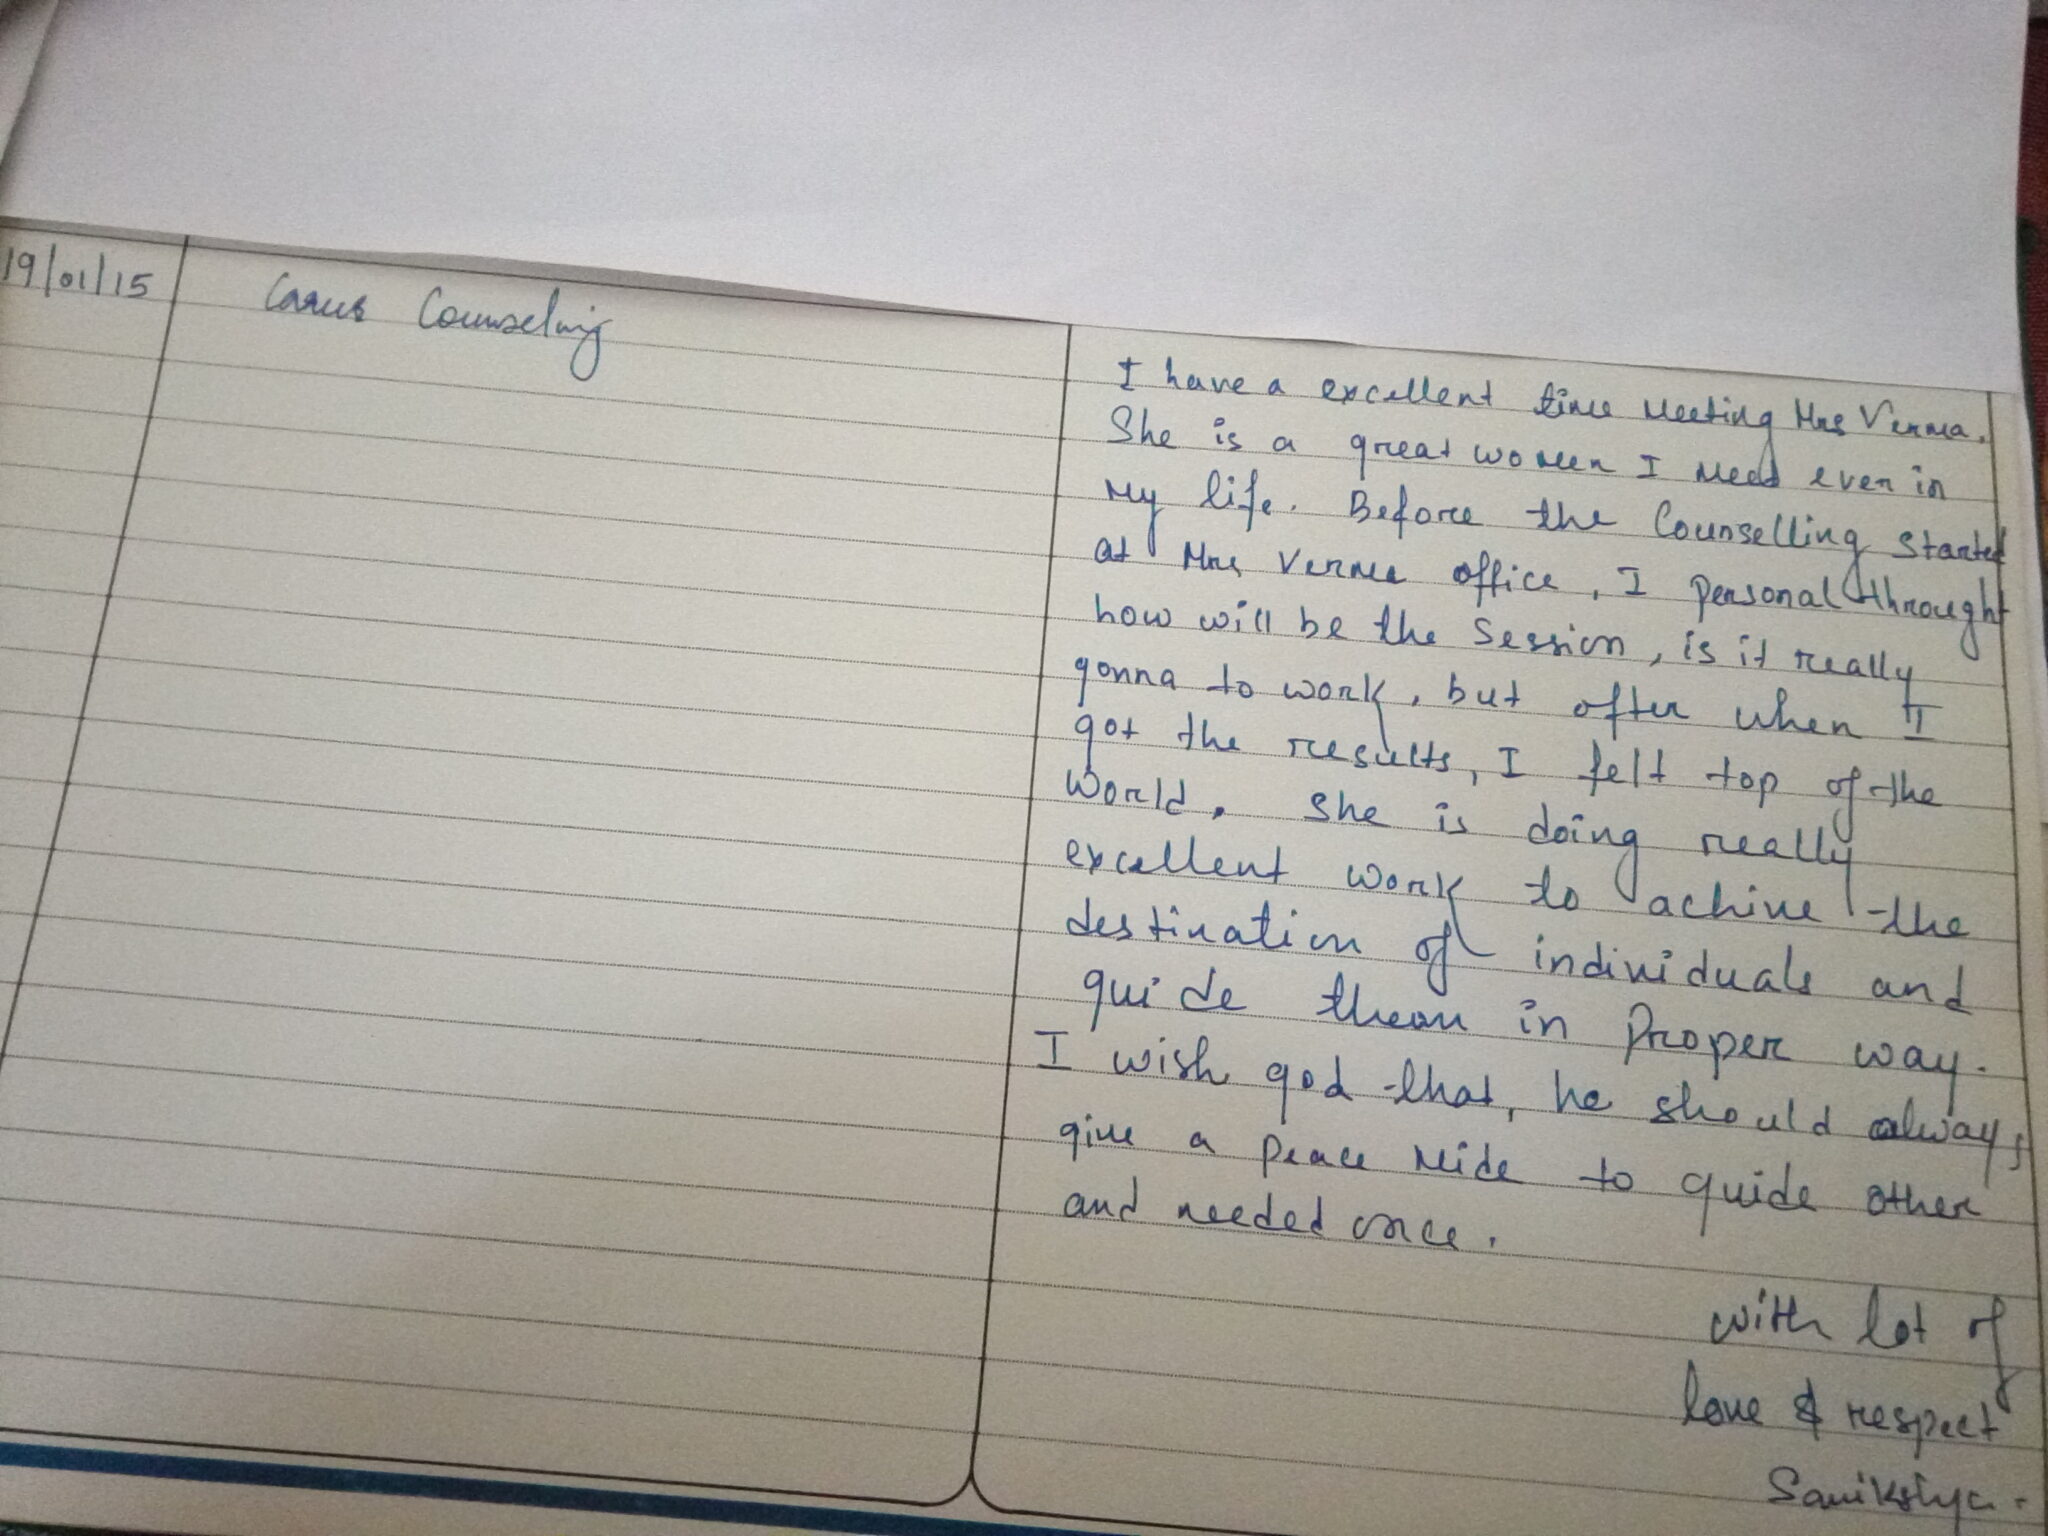 19/01/15
Carrer Counseling
I have a excellent time meeting Mrs Verma.
She is a great women I meed ever in
My life. Before the Counselling started
at Mrs Verma office, I personal throught
how will be the session, is it really
gonna to work, but after when I
got the results, I felt top of the
World. She is doing really
excellent work to achive the
destination of individuals and
guide them in Proper way.
I wish god that, he should always
give a peace mide to guide other
and needed once.
with lot of
love & respect
Samikshya.